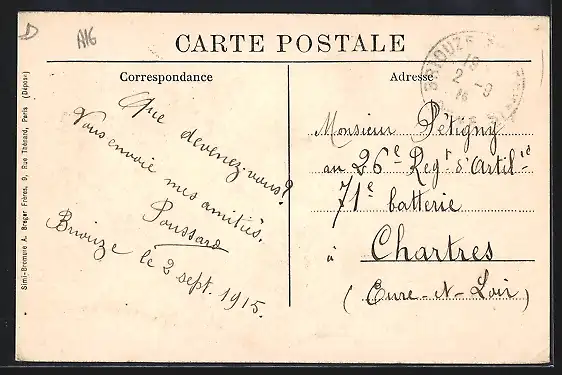 D
A16
CARTE POSTALE
Correspondance
Adresse
Simi-Bromure A. Breger Frères, 9, Rue Thénard, Paris (Déposé)
BRIOUZE
18
2 - 9
Que devenez-vous?
Vous envoie mes amitiés.
Poussard
Briouze le 2 sept. 1915.
Monsieur Pétigny
au 26e Regt d'Artilie
71e batterie
à Chartres
(Eure-et-Loir)